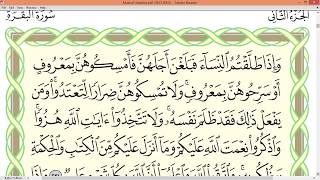 الجزء الثاني
سورة البقرة
وَإِذَا طَلَّقْتُمُ ٱلنِّسَآءَ فَبَلَغْنَ أَجَلَهُنَّ فَأَمْسِكُوهُنَّ بِمَعْرُوفٍ
أَوْ سَرِّحُوهُنَّ بِمَعْرُوفٍ ۚ وَلَا تُمْسِكُوهُنَّ ضِرَارًا لِّتَعْتَدُوا۟ ۚ وَمَن
يَفْعَلْ ذَٰلِكَ فَقَدْ ظَلَمَ نَفْسَهُۥ ۚ وَلَا تَتَّخِذُوٓا۟ ءَايَٰتِ ٱللَّهِ هُزُوًا ۚ
وَٱذْكُرُوا۟ نِعْمَتَ ٱللَّهِ عَلَيْكُمْ وَمَآ أَنزَلَ عَلَيْكُم مِّنَ ٱلْكِتَٰبِ وَٱلْحِكْمَةِ